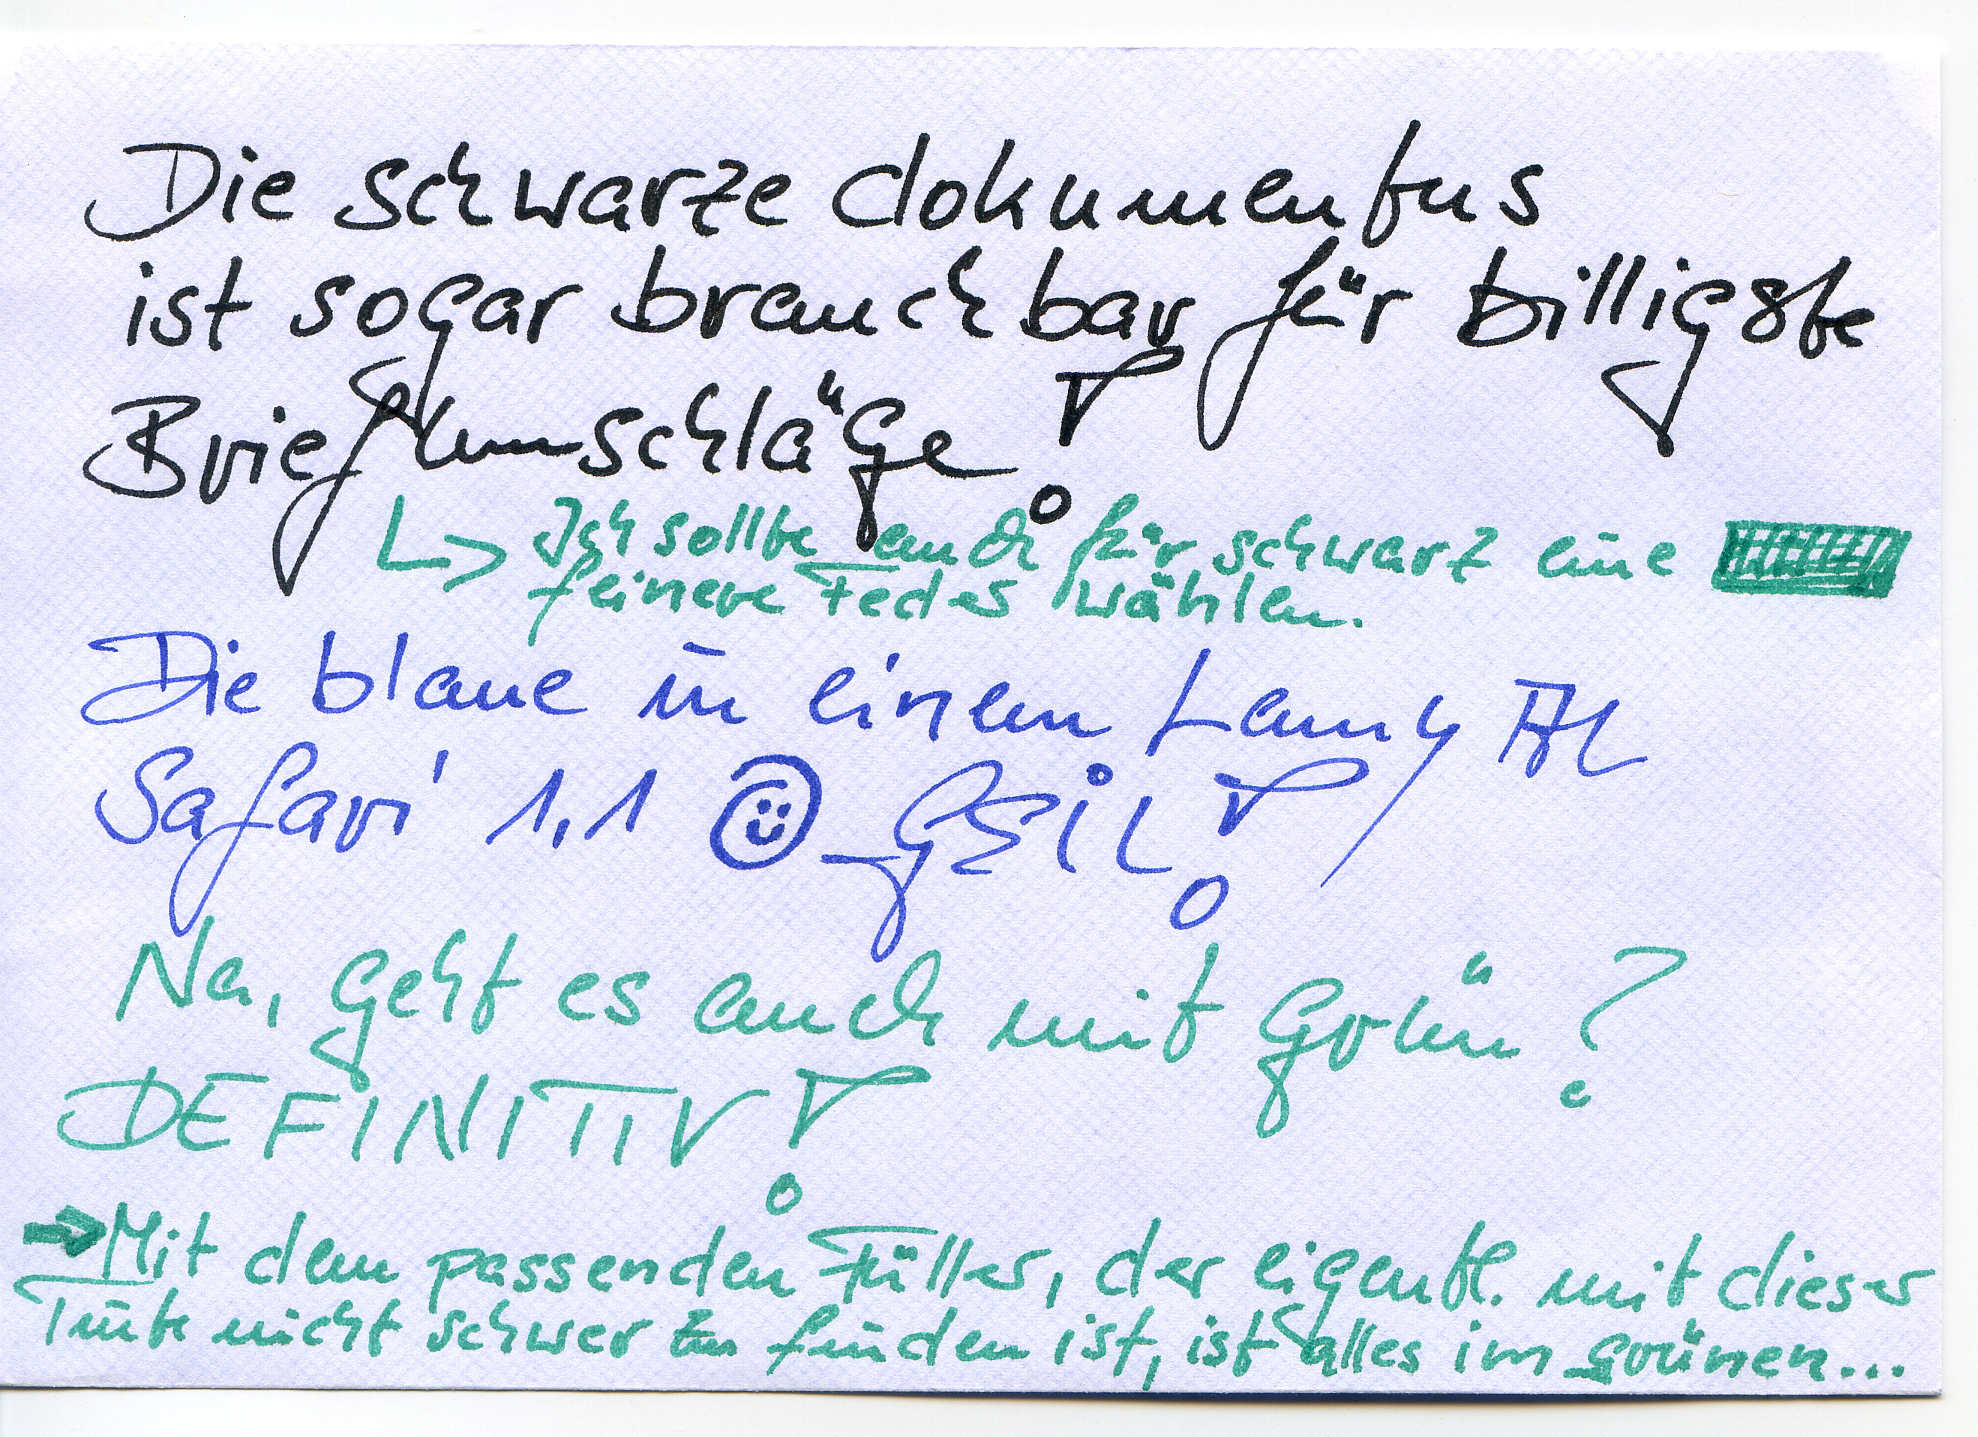 Die schwarze dokumentus
ist sogar brauchbar für billigste
Briefumschläge!
Ich sollte auch für schwarz eine
feinere Feder wählen.
Die blaue in einem Lamy AL
Safari 1,1 GEIL!
Na, geht es auch mit Grün?
DEFINITIV!
Mit dem passenden Füller, der eigentl. mit dieser
Tinte nicht schwer zu finden ist, ist alles im grünen...